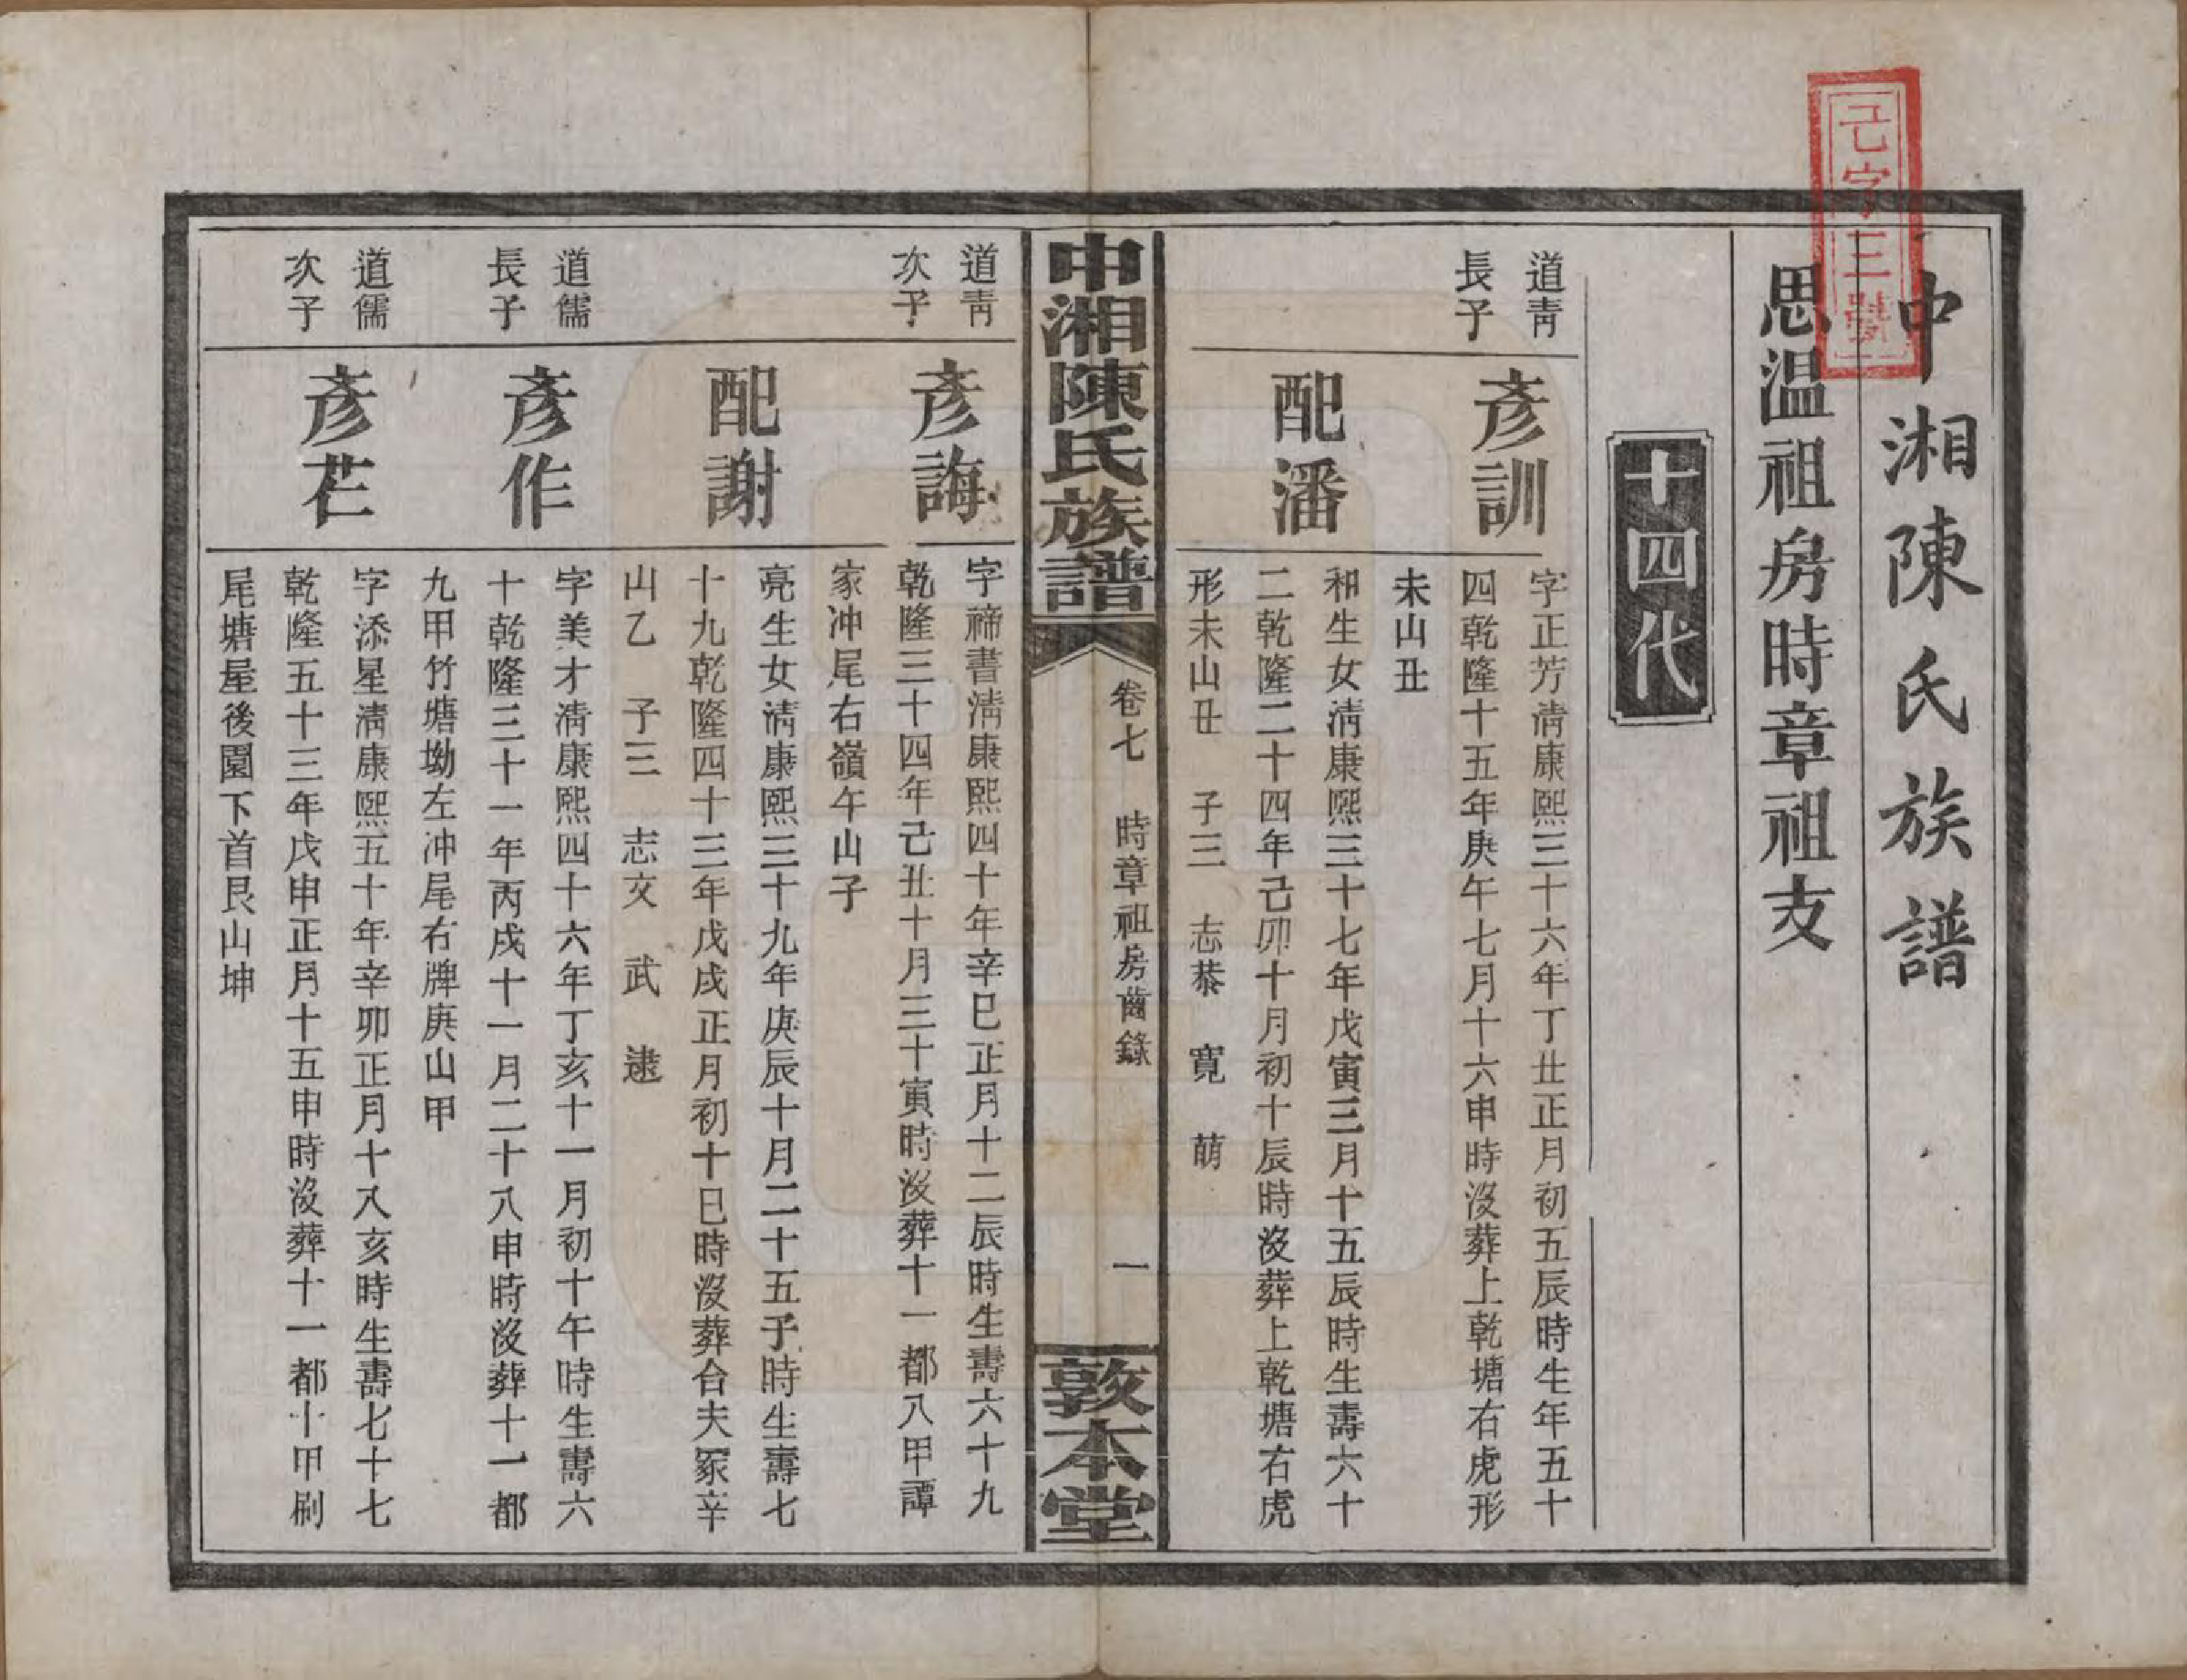 己字三號
中湘陳氏族譜
思温祖房時章祖支
十四代
道青
長子
彥訓
字正芳淸康熙三十六年丁丑正月初五辰時生年五十
四乾隆十五年庚午七月十六申時沒葬上乾塘右虎形
未山丑
配潘
和生女淸康熙三十七年戊寅三月十五辰時生壽六十
二乾隆二十四年己卯十月初十辰時沒葬上乾塘右虎
形未山丑 子三 志恭 寬 萠
中湘陳氏族譜
卷七 時章祖房齒錄 一
敦本堂
道青
次子
彥誨
字禘書淸康熙四十年辛巳正月十二辰時生壽六十九
乾隆三十四年己丑十月三十寅時沒葬十一都八甲譚
家冲尾右嶺午山子
配謝
亮生女淸康熙三十九年庚辰十月二十五子時生壽七
十九乾隆四十三年戊戌正月初十巳時沒葬合夫冢辛
山乙 子三 志文 武 逮
道儒
長子
彥作
字美才淸康熙四十六年丁亥十一月初十午時生壽六
十乾隆三十一年丙戌十一月二十八申時沒葬十一都
九甲竹塘坳左冲尾右牌庚山甲
道儒
次子
彥芢
字添星淸康熙五十年辛卯正月十八亥時生壽七十七
乾隆五十三年戊申正月十五申時沒葬十一都十甲刷
尾塘屋後園下首艮山坤